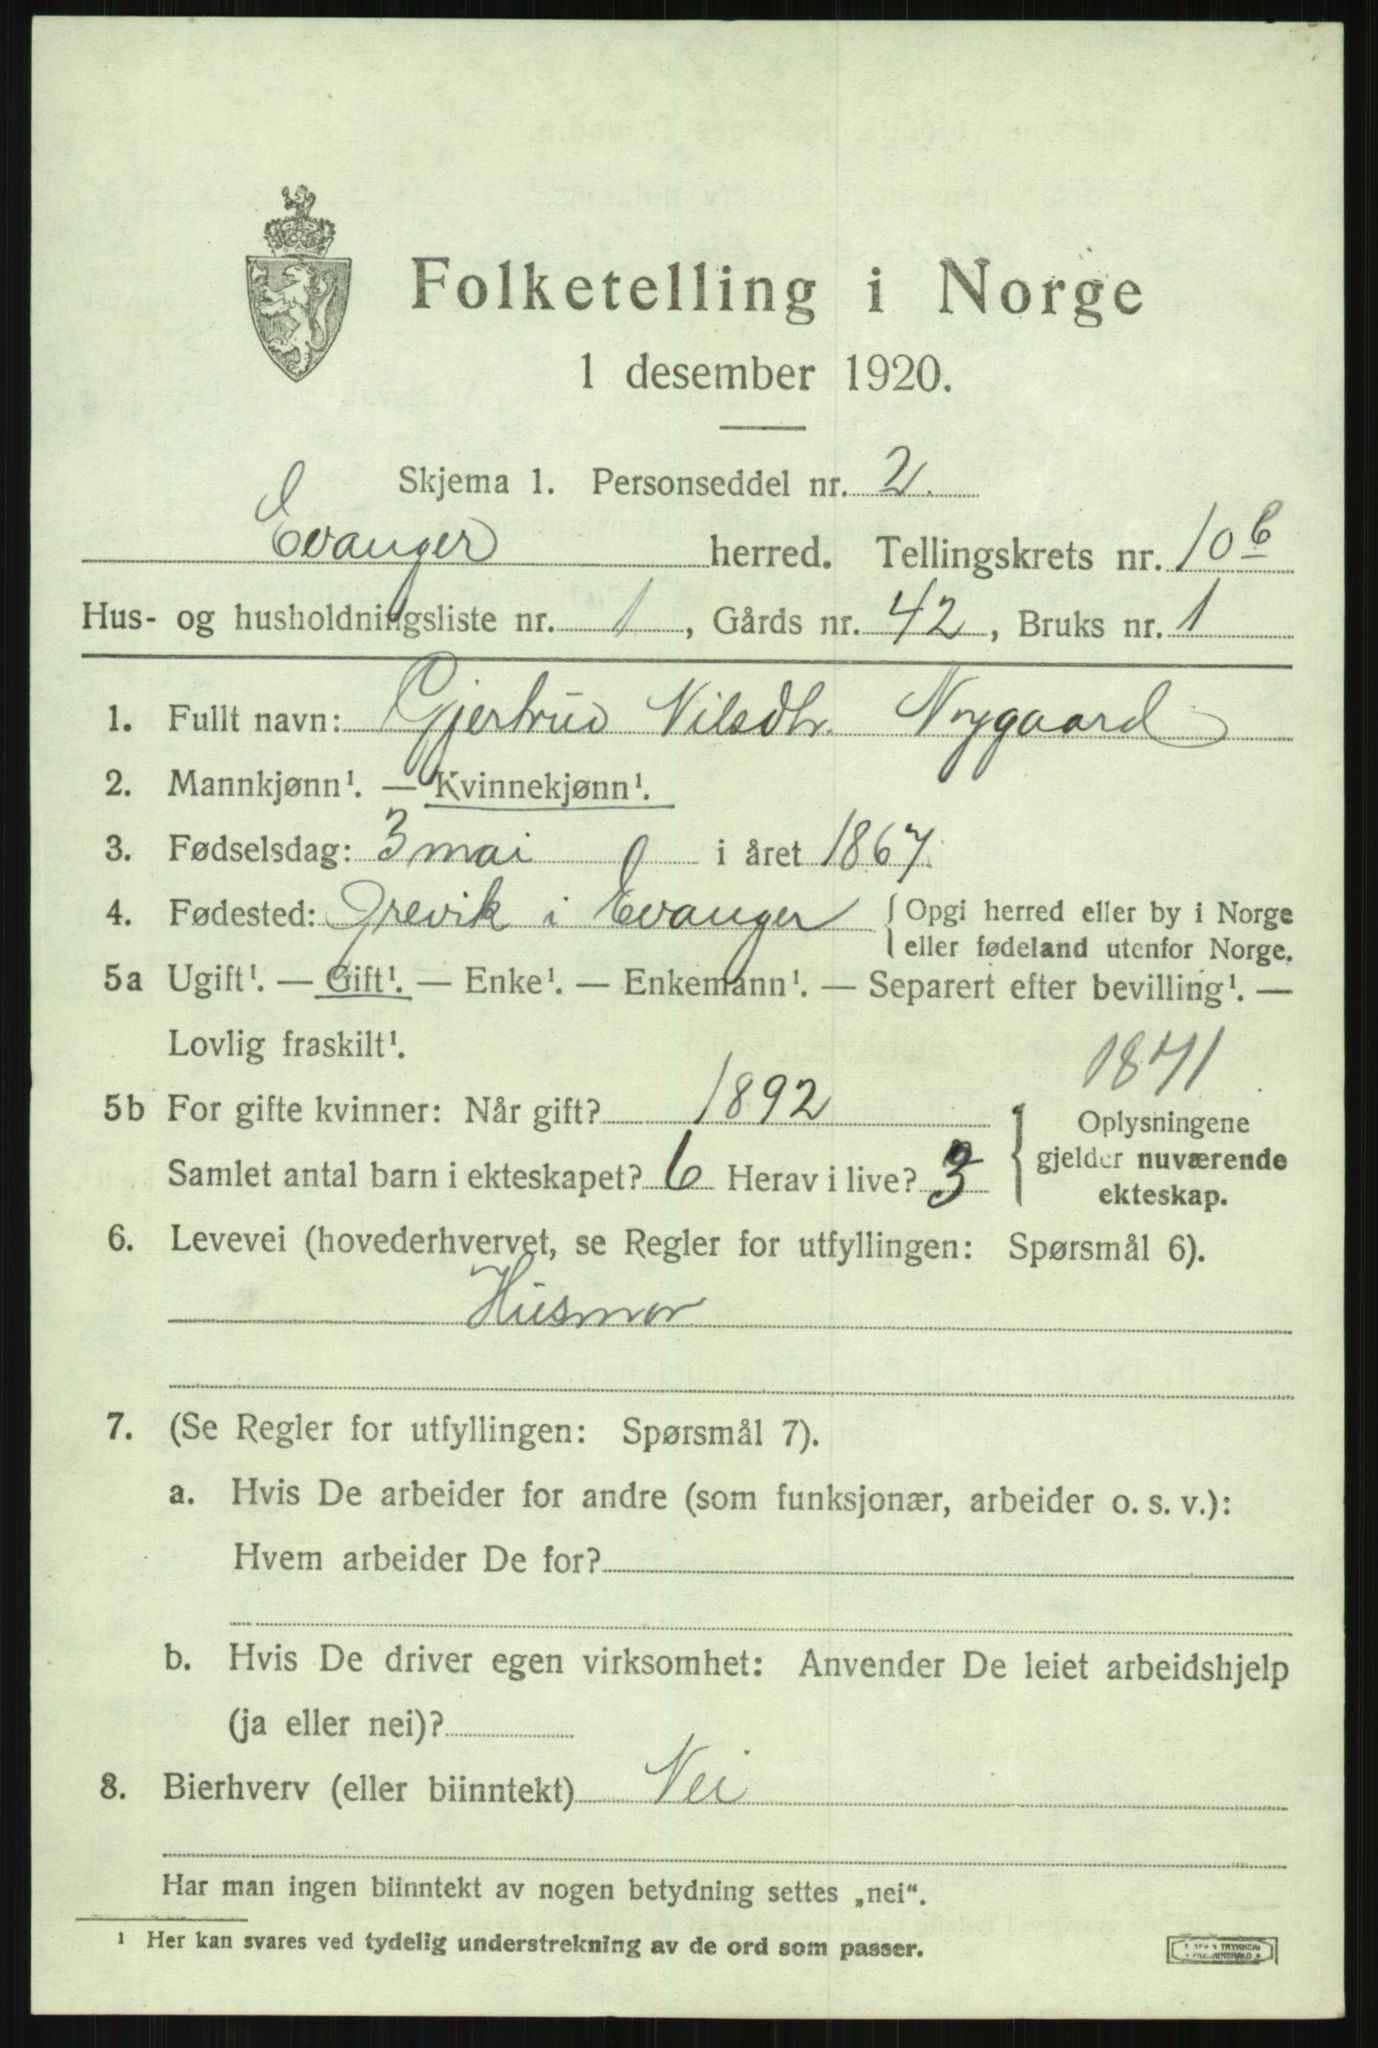 Folketelling i Norge
1 desember 1920.
Skjema 1. Personseddel nr. 2.
Evanger herred. Tellingskrets nr. 10 b
Hus- og husholdningsliste nr. 1, Gårds nr. 42, Bruks nr. 1
1. Fullt navn: Gjertrud Nilsdtr. Nygaard
2. Mannkjønn¹. — Kvinnekjønn¹.
3. Fødselsdag: 3 mai i året 1867.
4. Fødested: i Evanger { Opgi herred eller by i Norge
eller fødeland utenfor Norge.
5a Ugift¹. — Gift¹. — Enke¹. — Enkemann¹. — Separert efter bevilling¹. —
Lovlig fraskilt¹.
1871
5b For gifte kvinner: Når gift? 1892
Samlet antal barn i ekteskapet? 6 Herav i live? 3
Oplysningene
gjelder nuværende
ekteskap.
6. Levevei (hovederhvervet, se Regler for utfyllingen: Spørsmål 6).
Husmor
7. (Se Regler for utfyllingen: Spørsmål 7).
a. Hvis De arbeider for andre (som funksjonær, arbeider o. s. v.):
Hvem arbeider De for?
b. Hvis De driver egen virksomhet: Anvender De leiet arbeidshjelp
(ja eller nei)?
8. Bierhverv (eller biinntekt) Nei
Har man ingen biinntekt av nogen betydning settes „nei“.
¹ Her kan svares ved tydelig understrekning av de ord som passer.